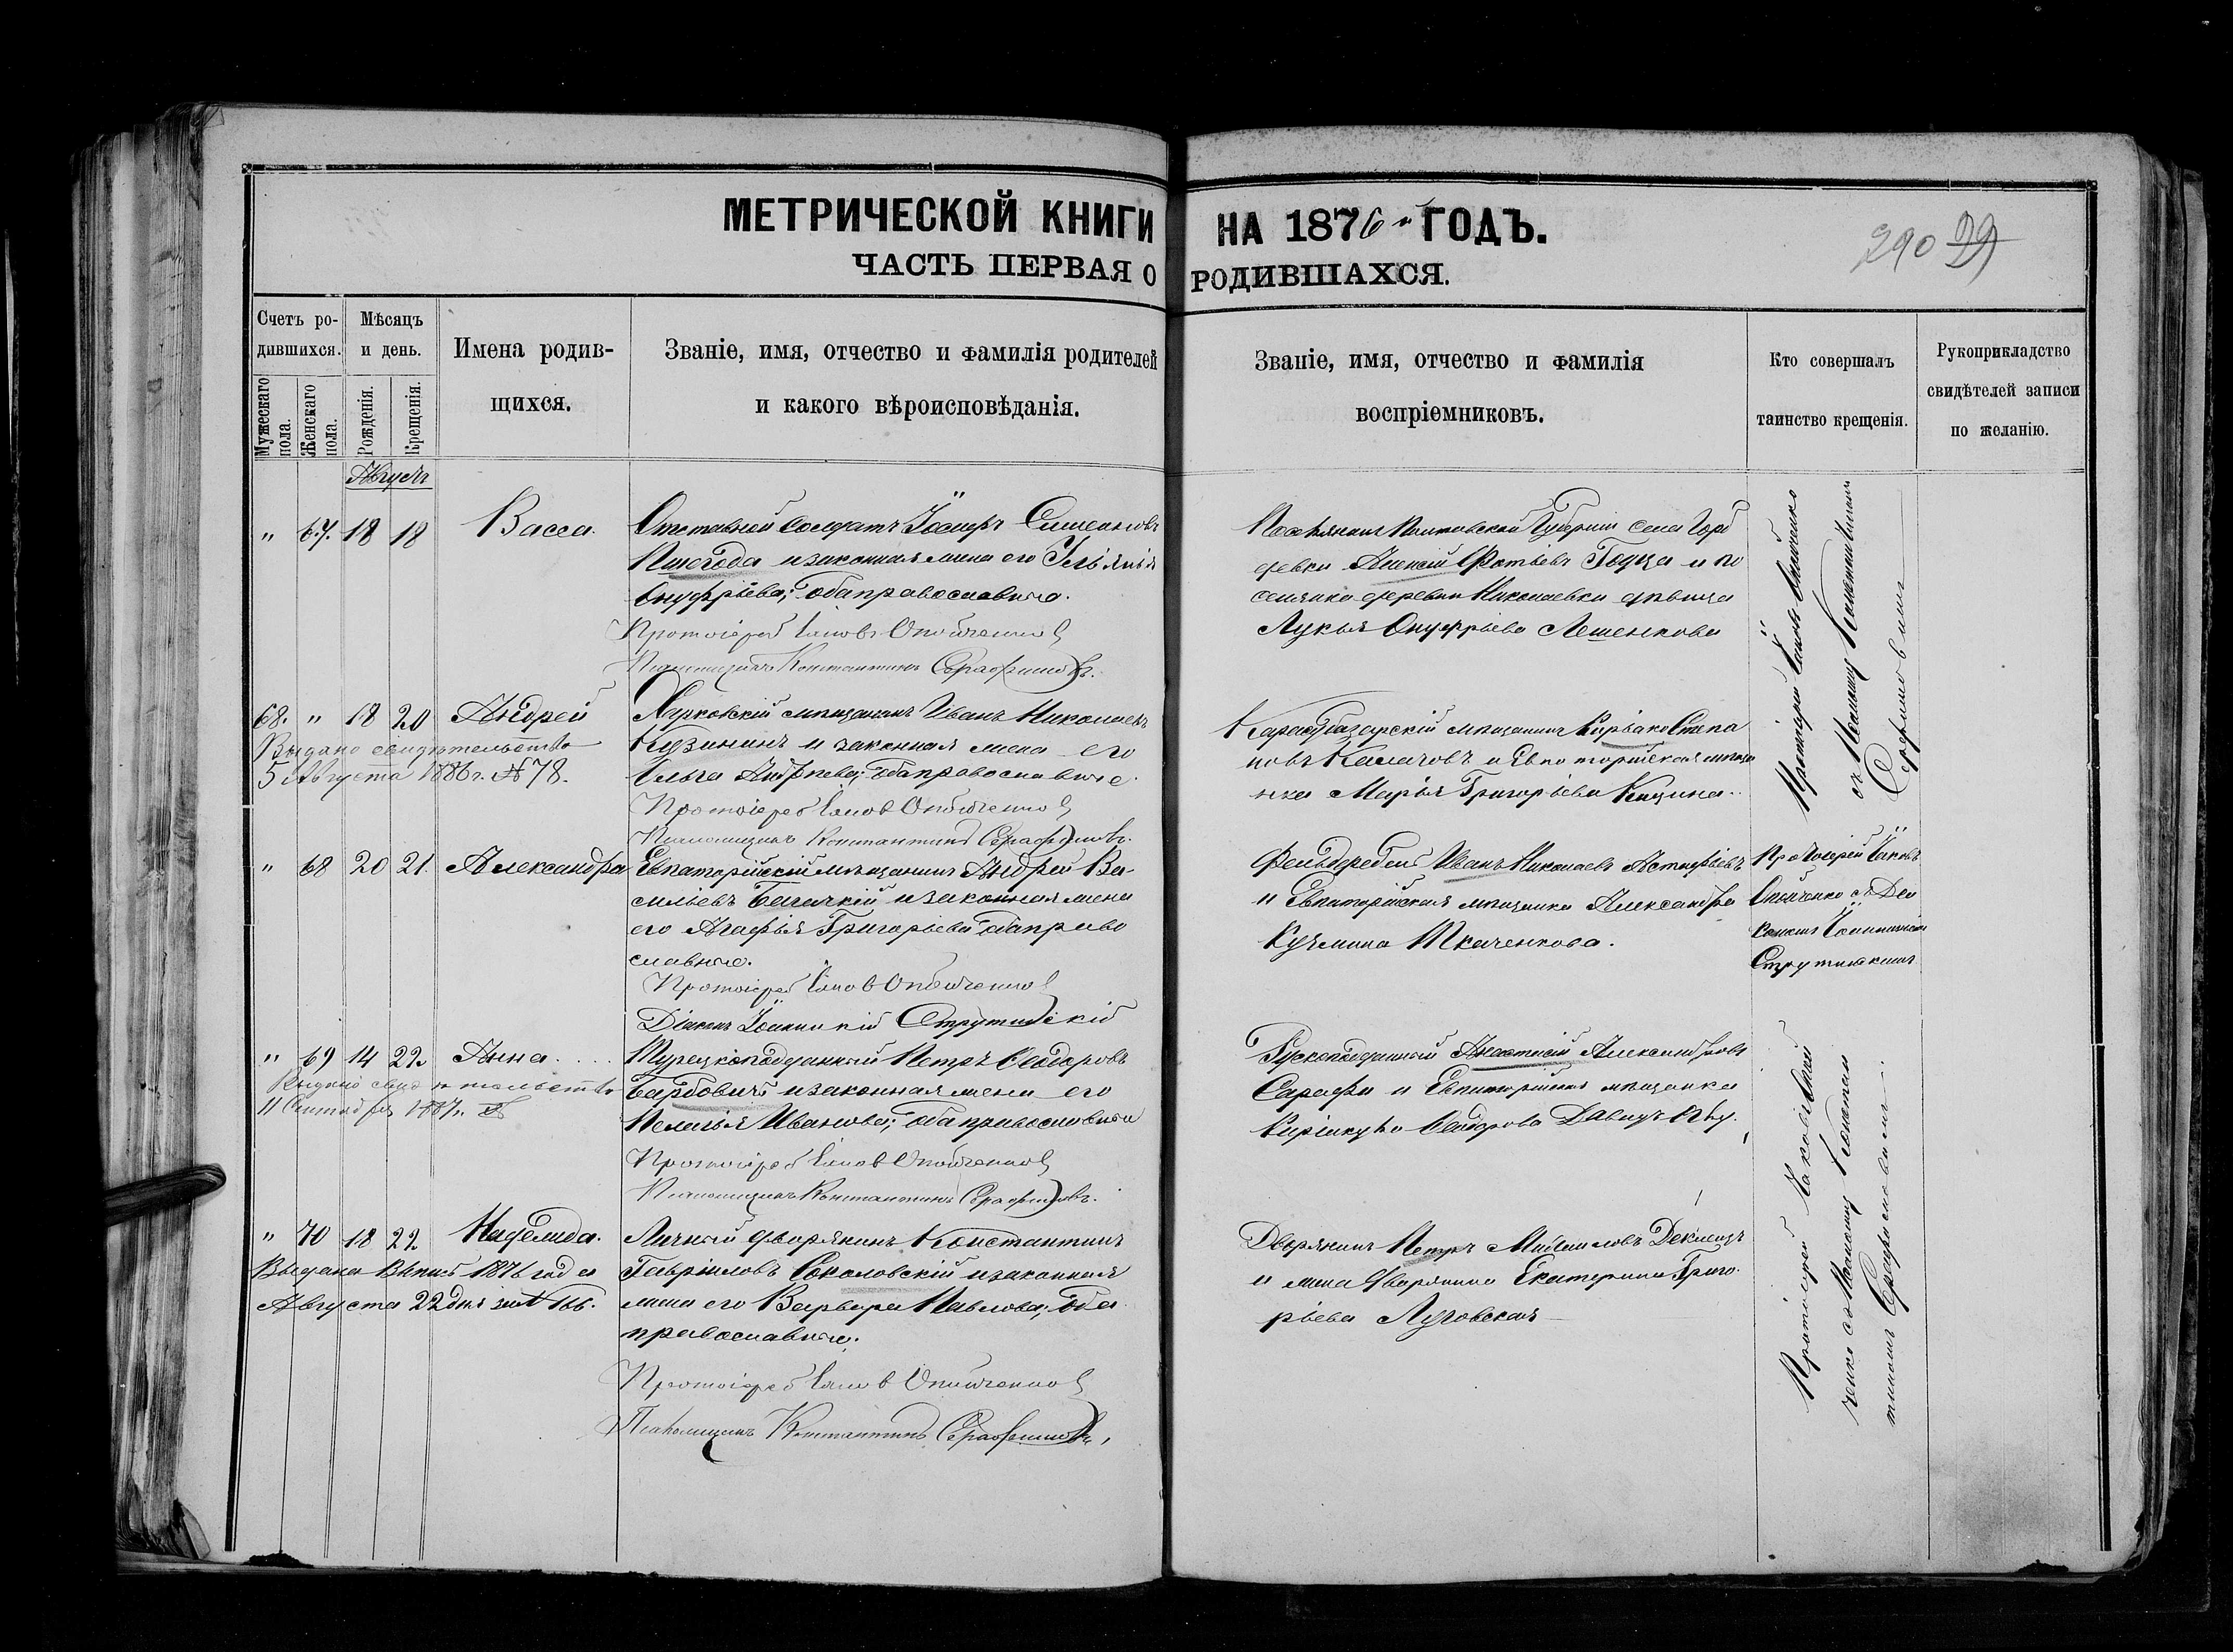 МЕТРИЧЕСКОЙ КНИГИ НА 1876й ГОДЪ.
ЧАСТЬ ПЕРВАЯ О РОДИВШАХСЯ.
290 99
Счетъ ро-
дившихся.
Мужескаго пола.
Женскаго пола.
Мѣсяцъ
и день.
Рожденія.
Крещенія.
Имена родив-
щихся.
Званіе, имя, отчество и фамилія родителей
и какого вѣроисповѣданія.
Званіе, имя, отчество и фамилія
воспріемниковъ.
Кто совершалъ
таинство крещенія.
Рукоприкладство
свидѣтелей записи
по желанію.
Августъ
" 67. 18 18 Васса.
Отставной солдатъ Іосифъ Симеоновъ
и законная жена его
Онуфріева; оба православные.
Протоіерей Іаковъ Опойченко
Псаломщикъ Константинъ Серафимовъ.
Полтавской Губерніи села
и по
селянка деревни Николаевки дѣвица
Лукья Онуфрьева Лешенкова
Протоіерей Іаковъ Опойченко
68. " 18 20 Андрей
Выдано свидѣтельство
5 Августа 1886 г. № 78.
Харковскій мѣщанинъ Иванъ Николаевъ
Кузининъ и законная жена его
Ольга Андрѣева; оба православные.
Протоіерей Іаковъ Опойченко
Псаломщикъ Константинъ Серафимовъ.
Карасубазарскій мѣщанинъ Кирьяко Степа
новъ Калачовъ и Евпаторійская мѣщан
нка Марья Григорьева Кацина.
" 68 20 21. Александра
Евпаторійскій мѣщанинъ Андрей Ва-
сильевъ Багацкій и законная жена
его Агафья Григорьева оба право
славные.
Протоіерей Іаковъ Опойченко
Діаконъ Іоанникій Струтинскій
Фельдфебель Иванъ Николаевъ Астафьевъ
и Евпаторійская мѣщанка Александра
Кузмина Ткаченкова.
Протоіерей Іаковъ
Опойченко съ Діа
кономъ Іоанникіемъ
Струтинскимъ
" 69 14 22 Анна.
Выдано свидѣтельство
11 Сентября 1887 г.
Турецкоподданный Петръ Ѳеодоровъ
Барбовичъ и законная жена его
Пелагія Иванова; оба православные
Протоіерей Іаковъ Опойченко
Псаломщикъ Константинъ Серафимовъ.
Рускоподданный Александровъ
Сарафи и Евпаторійская мѣщанка
Ѳеодорова
" 70 18 22 Надежда.
Выдана Выпись 1876 года
Августа 22 дня за № 166.
Личный дворянинъ Константинъ
Гавріиловъ Соколовскій и законная
жена его Варвара Павлова; оба
православные.
Протоіерей Іаковъ Опойченко
Псаломщикъ Константинъ Серафимовъ.
Дворянинъ Петръ Михаиловъ
и жена дворянина Екатерина Григо
рьева Луговская